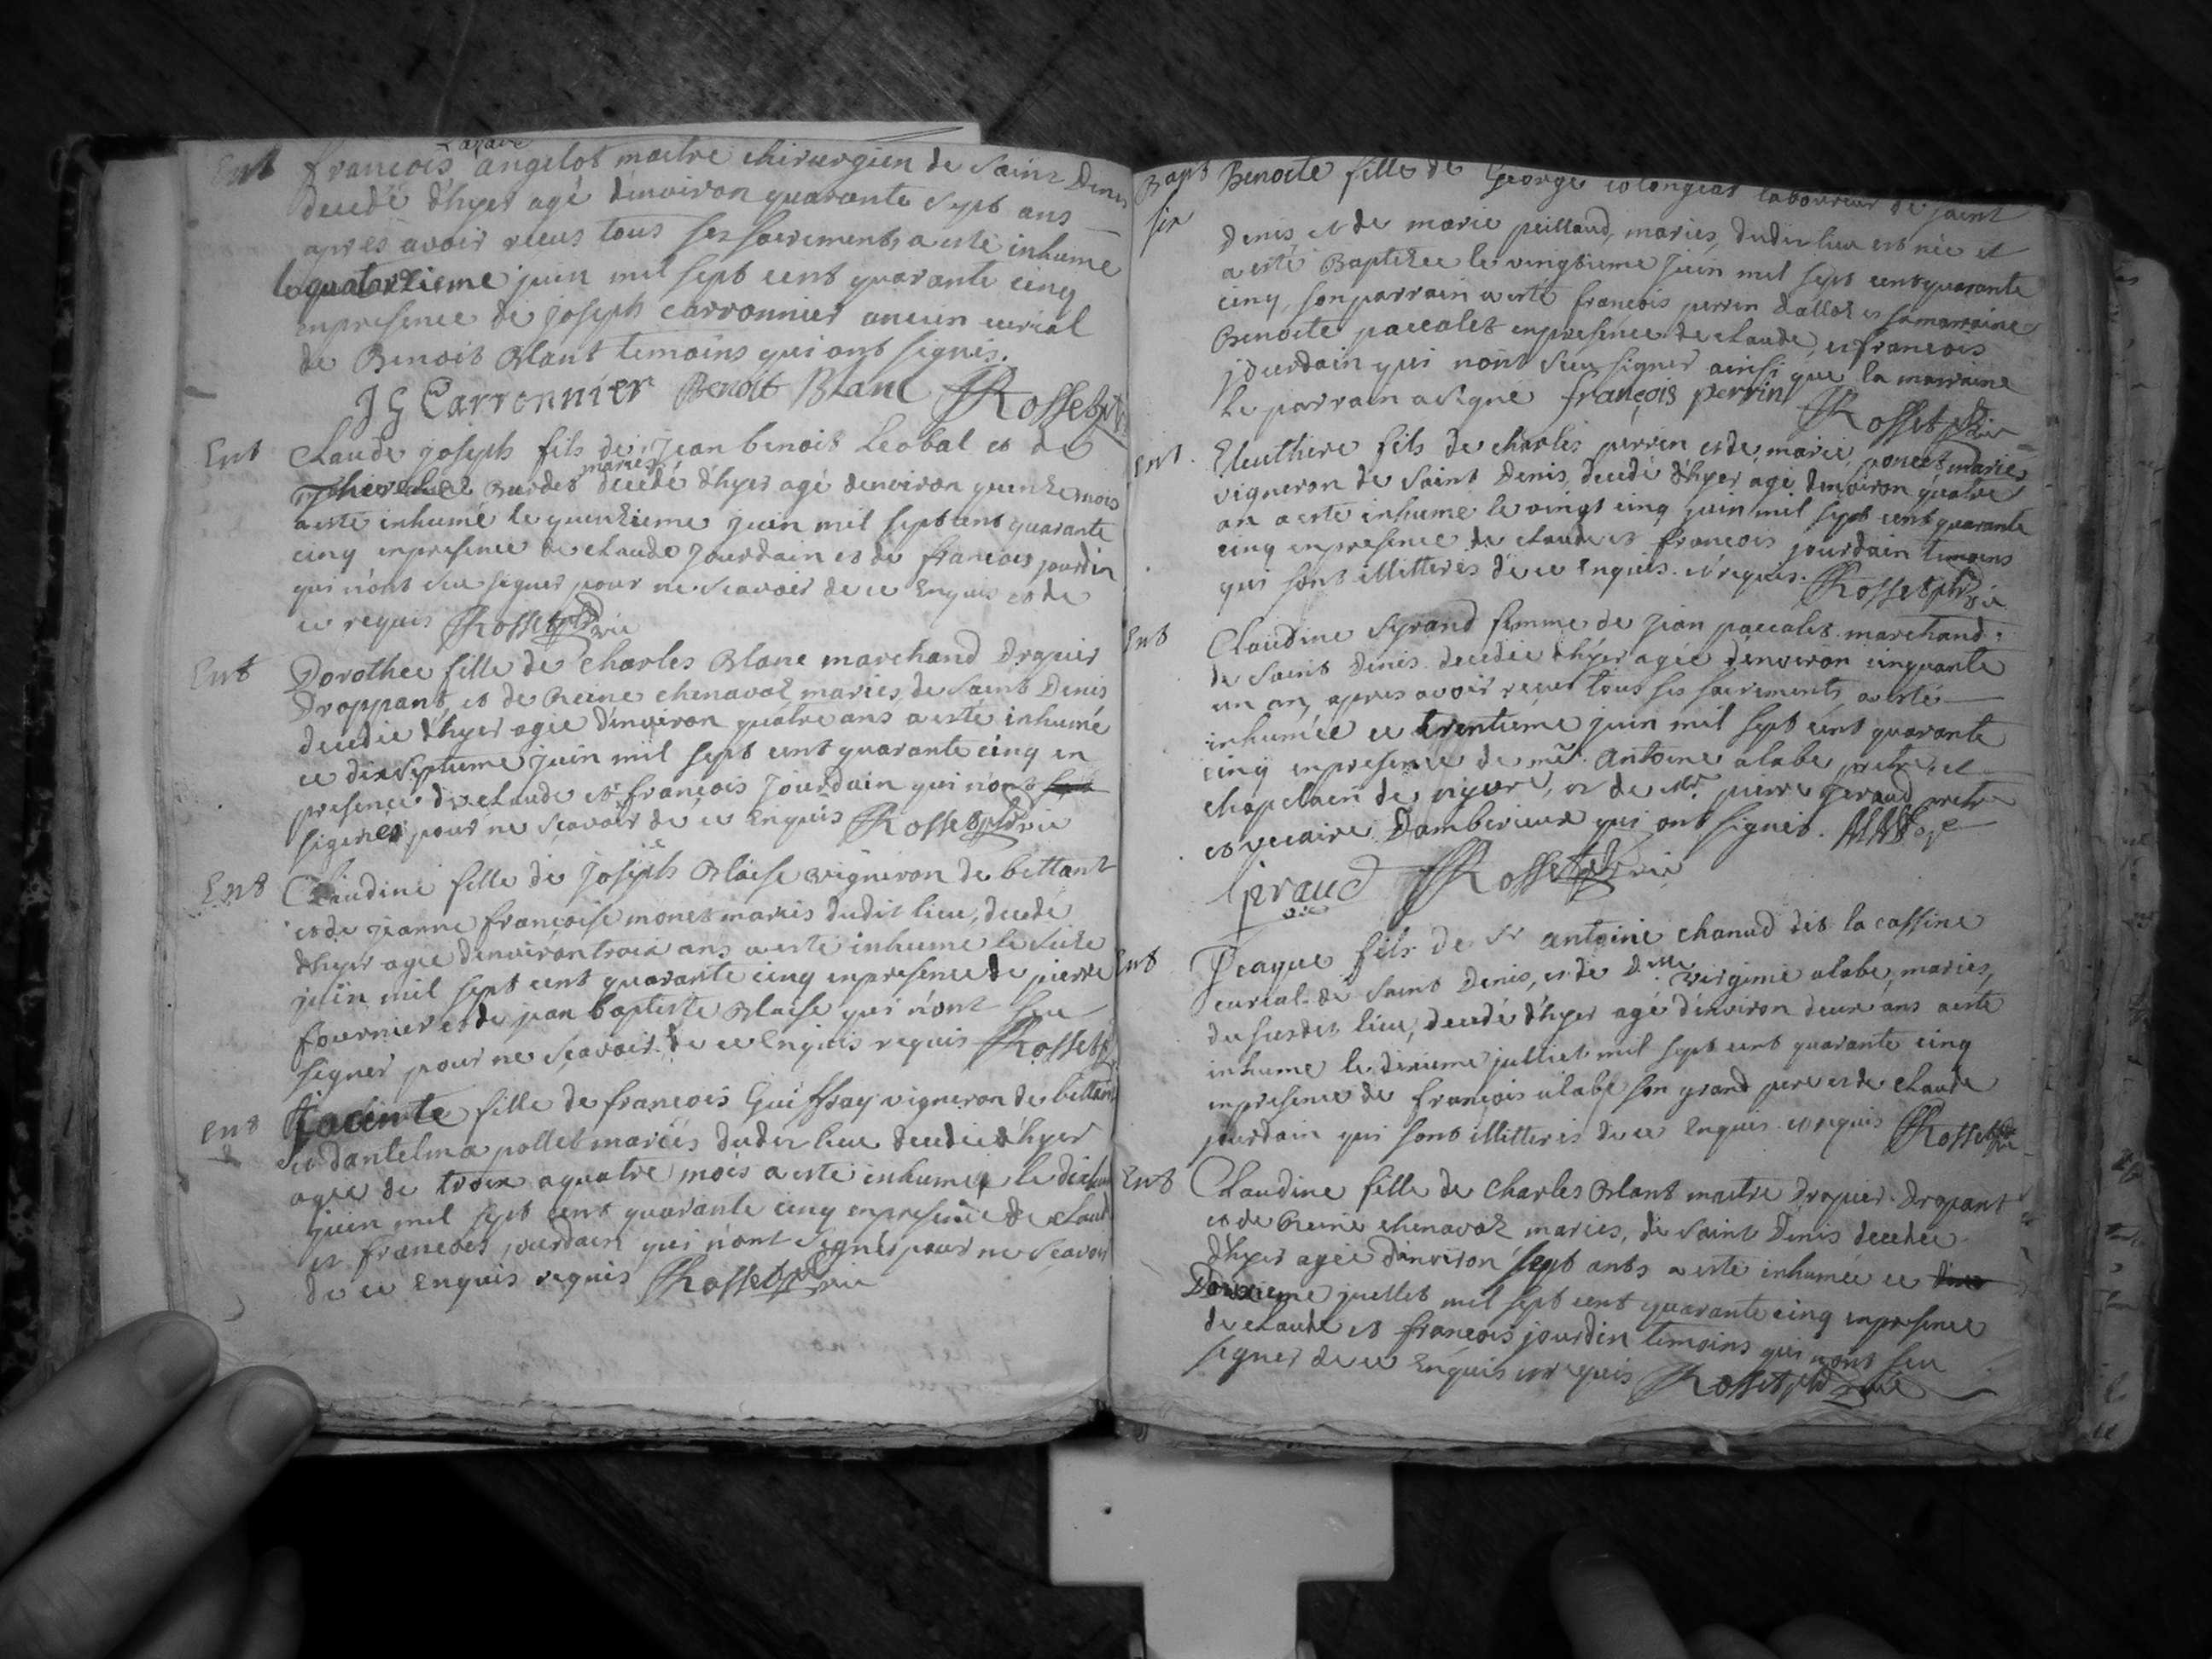 Ent françois Lazare angelot maitre chirurgien de Saint Denis
decedé d'hyer agé d'environ quarante Sept ans
apres avoir reçus tous ses sacrements a esté inhumé
le quatorzieme juin mil sept cent quarante cinq
en presence de joseph carronnier ancien curial
de Benoit Blant temoins qui ont signés.
JG Carronnier Benoit Blanc Rosset
Ent Claude joseph fils de jean benoit Leobal et de
Burdet mariés decedé d'hyer agé denviron quinze mois
a esté inhumé le quinzieme juin mil sept cent quarante
cinq en presence de claude Jourdain et de francois jourdin
qui n'ont seu signer pour ne scavoir de ce Enquis et de
ce requis Rosset ptre vic
Ent Dorothee fille de Charles Blanc marchand Drapier
Drappant, et de Reine chenavaz mariés, de Saint Denis
decedée d'hyer agée d'environ quatre ans a esté inhumé
ce dixseptieme juin mil sept cent quarante cinq en
presence de claude et françois Jourdain qui n'ont
signés pour ne scavoir de ce Enquis Rosset ptre vic
Ent Claudine fille de Joseph Blaise vigneron de bettant
et de jeanne francoise monet mariés dudit lieu, decedé
d'hyer agée denviron trois ans a esté inhume le seize
juin mil sept cent quarante cinq en presence de pierre
fournier et de jean baptiste Blaise qui n'ont seu
signer pour ne scavoir de ce Enquis requis Rosset
Ent Jacinte fille de francois Guiffray vigneron de bettant
et dantelma pollet mariés dudit lieu decedée d'hyer
agée de troix a quatre mois a esté inhumé le
juin mil sept cent quarante cinq en presence de claude
et francois jourdain qui n'ont Signés pour ne Scavoir
de ce Enquis requis Rosset ptre vic
Bapt Benoite fille de George colongeat laboureur de saint
Denis et de marie peillaud, mariés, dudit lieu est née et
a esté Baptizee le vingtieme juin mil sept cent quarante
cinq, son parrain a esté francois perrin et sa marraine
Benoite paccalet en presence de claude, et francois
jourdain qui n'ont seu signer ainsi que la marraine
le parrain a signé françois perrin Rosset ptre vic
Ent Eleuthere fils de charles perrin et de marie poncet mariés
vigneron de Saint Denis, decedé d'hyer agé denviron quatre
an a esté inhume le vingt cinq juin mil sept cent quarante
cinq en presence de claude et francois jourdain temoins
qui sont illitteres de ce Enquis et requis. Rosset ptre vic
Ent Claudine femme de Jean paccalet marchand
de Saint Denis decedée d'hyer agée d'environ cinquante
un an, apres avoir reçus tous ses sacrements, a esté
inhumée ce trentieme juin mil sept cent quarante
cinq en presence de mre. Antoine alabe pretre, et
chapelain de , et de Mr. pierre Jeraud pretre
et vicaire Damberieux qui ont signés.
Geraud vic Rosset ptre vic
Ent Jeaque fils de Sr antoine chanud dit la cassine
curial de Saint Denis, et de Dlle virginie alabe, mariés,
du susdit lieu, decedé d'hyer agé d'environ deux ans a esté
inhume le dixieme julliet mil sept cent quarante cinq
en presence de françois alabe son grand pere et de claude
jourdain qui sont illitteres de ce Enquis et requis Rosset ptre vic
Ent Claudine fille de Charles Blant maitre Drapier Drapant
et de Reine chenavaz mariés, de Saint Denis decedée
d'hyer agée d'environ sept ants a esté inhumée ce
Douxieme juellet mil sept cent quarante cinq en presence
de claude et françois jourdin temoins qui n'ont seu
signer de ce Enquis et requis Rosset ptre vic